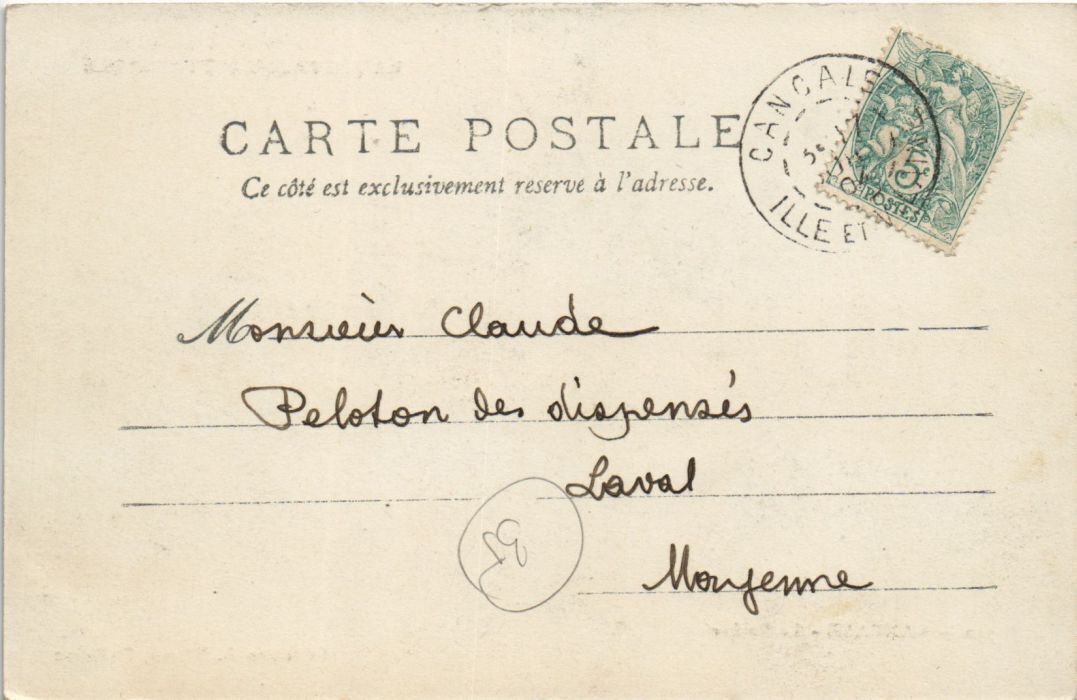 CARTE POSTALE
Ce côté est exclusivement reserve à l'adresse.
CANCALE
ILLE ET
5
POSTES
Monsieur Claude
Peloton des dispensés
Laval
Mayenne
35